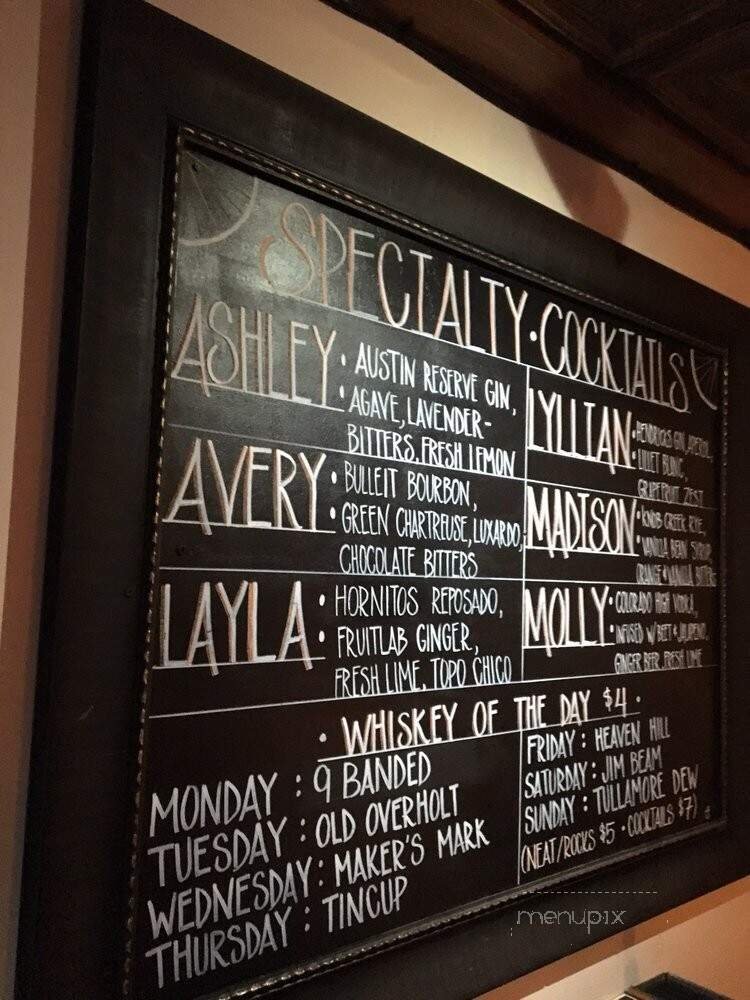 SPECIALTY · COCKTAILS
ASHLEY · AUSTIN RESERVE GIN,
· AGAVE, LAVENDER-
BITTERS, FRESH LEMON
AVERY · BULLEIT BOURBON,
· GREEN CHARTREUSE, LUXARDO,
CHOCOLATE BITTERS
LAYLA · HORNITOS REPOSADO,
· FRUITLAB GINGER,
FRESH LIME, TOPO CHICO
LYLLIAN · HENDRICKS GIN, APEROL,
· LILLET BLANC,
GRAPEFRUIT ZEST
MADISON · KNOB CREEK RYE,
· VANILLA BEAN SYRUP
ORANGE + VANILLA BITTERS
MOLLY · COLORADO HIGH VODKA,
· INFUSED W/ BEET + JALAPENO,
GINGER BEER, FRESH LIME
· WHISKEY OF THE DAY $4 ·
MONDAY : 9 BANDED
TUESDAY : OLD OVERHOLT
WEDNESDAY : MAKER'S MARK
THURSDAY : TINCUP
FRIDAY : HEAVEN HILL
SATURDAY : JIM BEAM
SUNDAY : TULLAMORE DEW
(NEAT/ROCKS $5 · COCKTAILS $7)
menupix